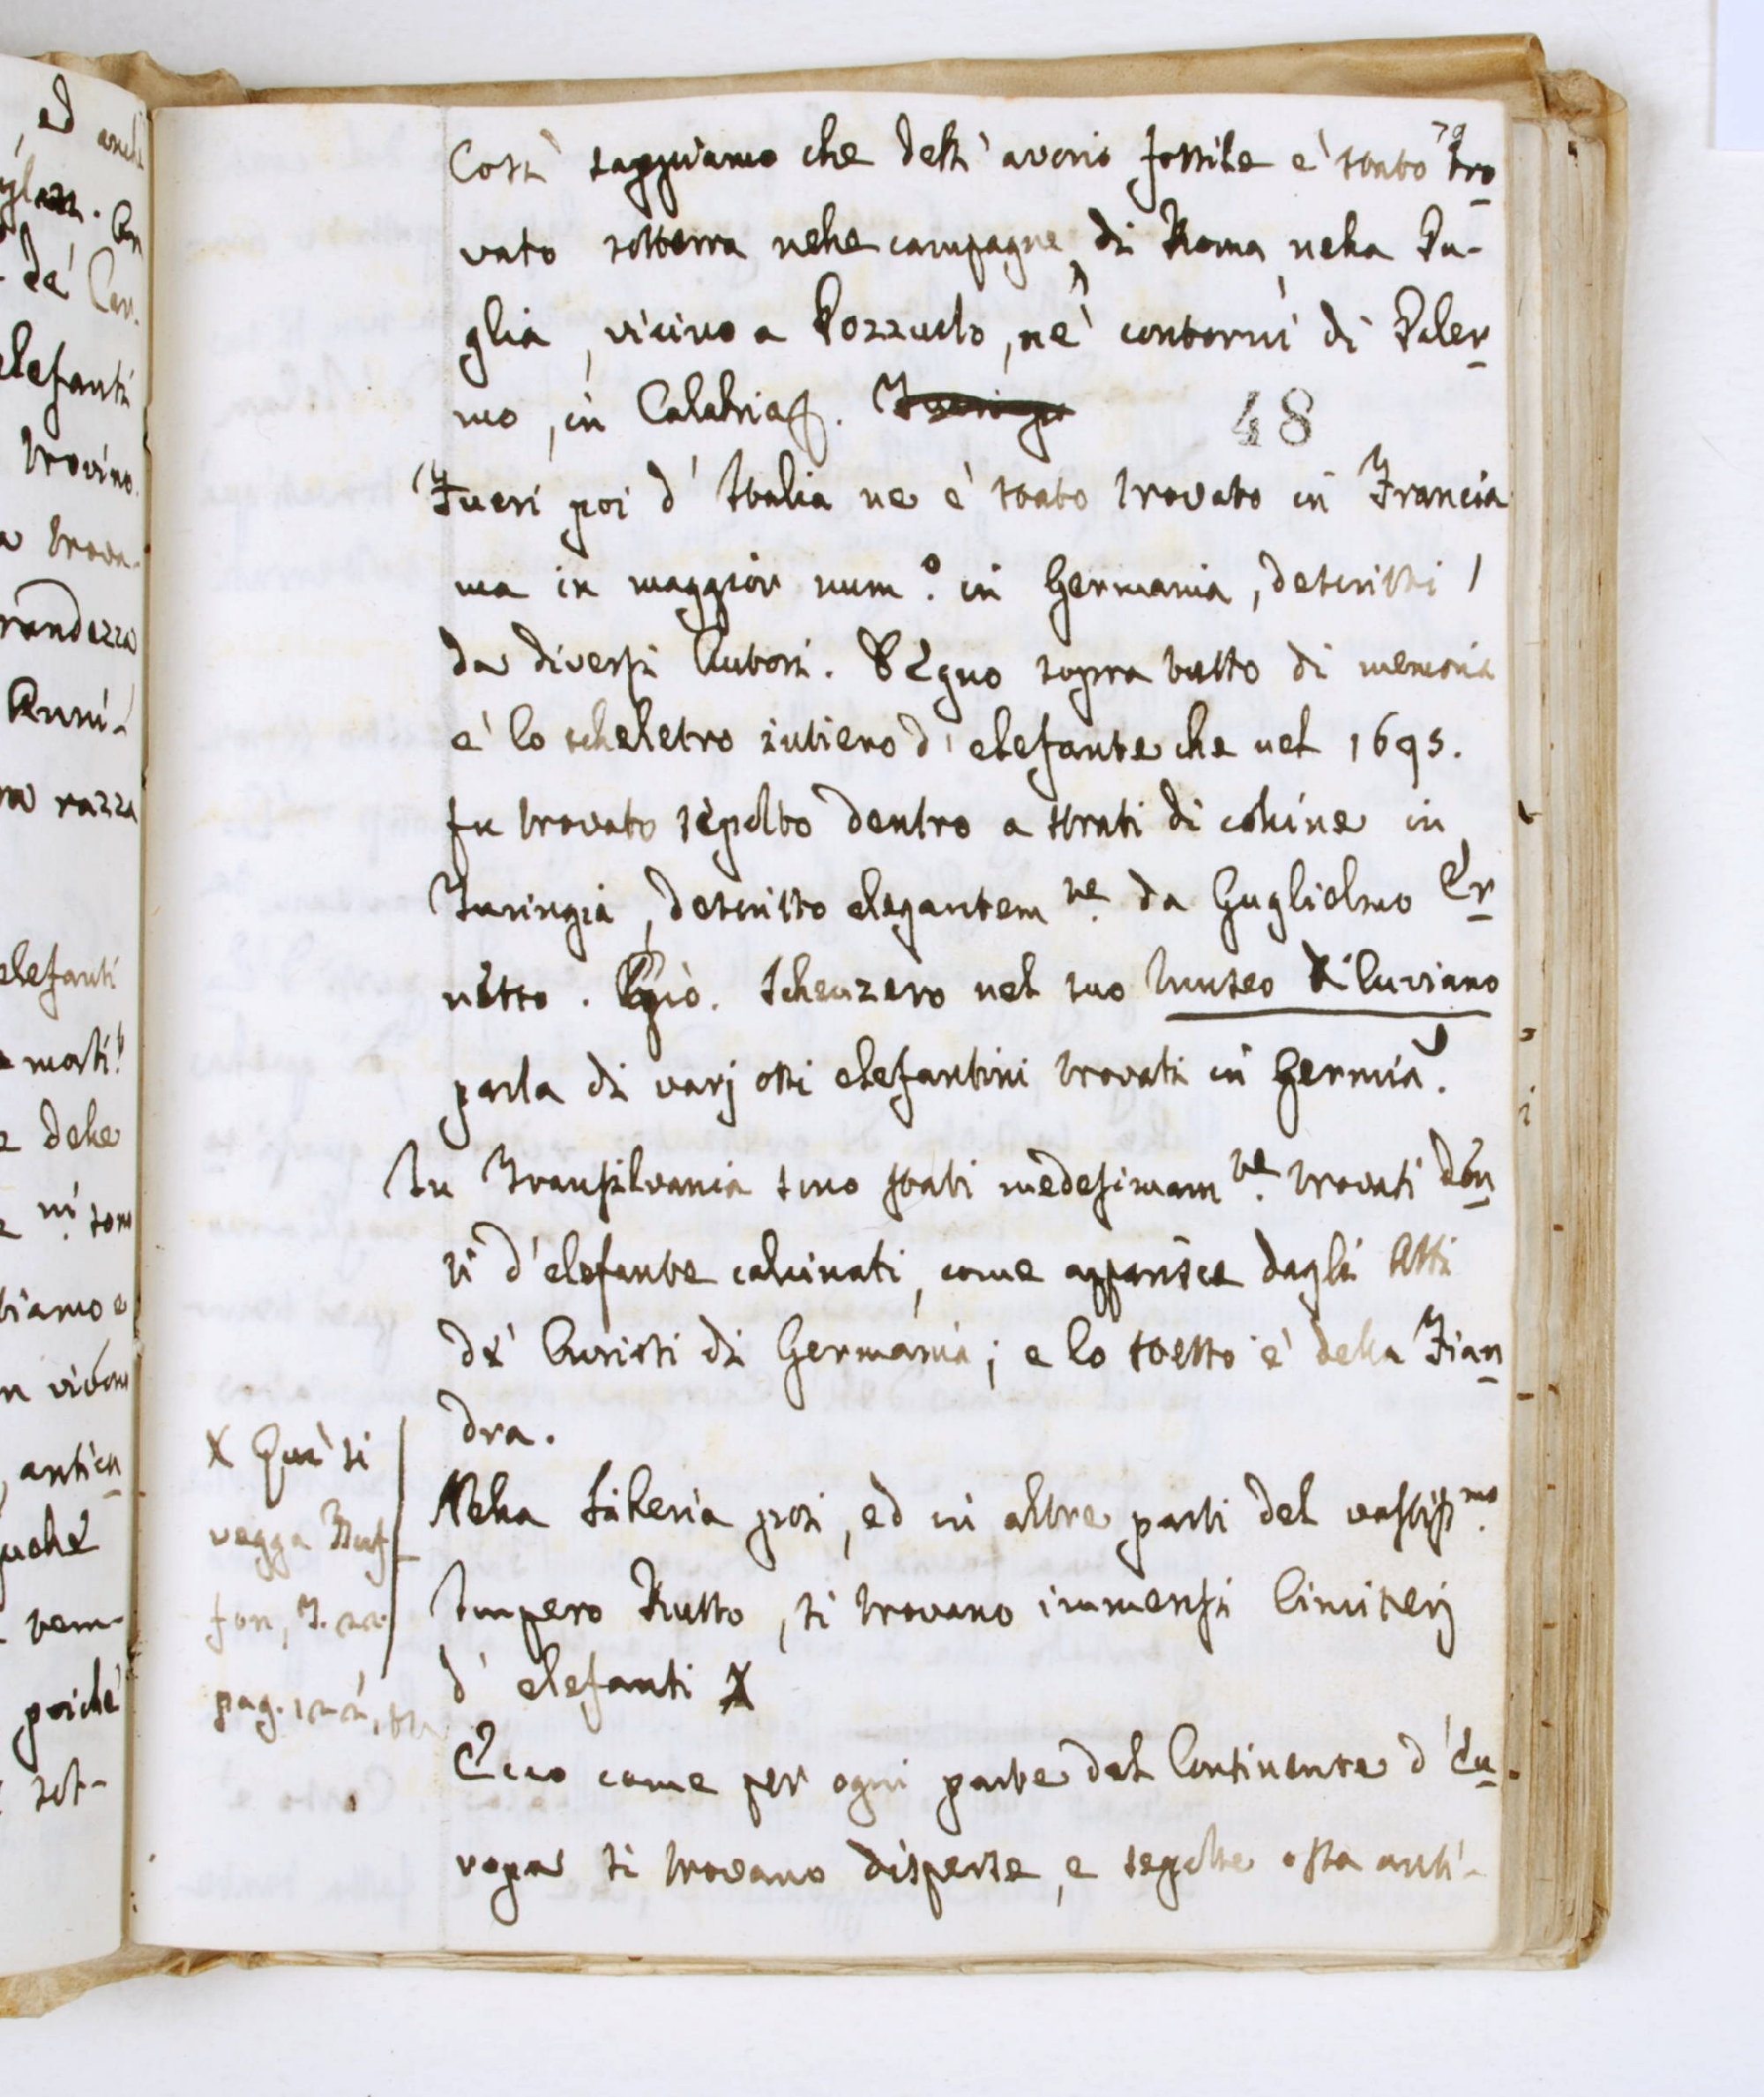 ed anche
de' Cav.
elefanti
trovino.
trova-
randezza
Anni-
razza
elefanti
delle
sono
biamo e
antich
poiché
sot-
79
Così sappiamo che dell' avorio fossile e' stato tro
vato sotterra nelle campagne di Roma, nella Pu-
glia, vicino a Pozzuolo, ne' contorni di Paler
mo, in Calabria &.
48
Fuori poi d' Italia ne e' stato trovato in Francia
ma in maggior num.o in Germania, descritti
da diversi Autori. Degno sopra tutto di memoria
e' lo scheletro intiero d' elefante che nel 1695.
fu trovato sepolto dentro a strati di colline in
Turingia, descritto elegantem.te da Guglielmo Er
nesto. Giò. Scheuzero nel suo Museo Diluviano
parla di varj ossi elefantini trovati in Germia.
In Transilvania sono stati medesimam.te trovati den
ti d'elefante calcinati, come apparisce dagli Atti
de' Curiosi di Germania; e lo stesso e' della Fian
dra.
Nella Siberia poi, ed in altre parti del vastiss.mo
Impero Russo, si trovano immensi Cimiterj
d' elefanti X
X Quì si
vegga Buf-
fon, T. 22.
pag.
Ecco come per ogni parte del Continente d' Eu
ropa si trovano disperse, e sepolte ossa anti-